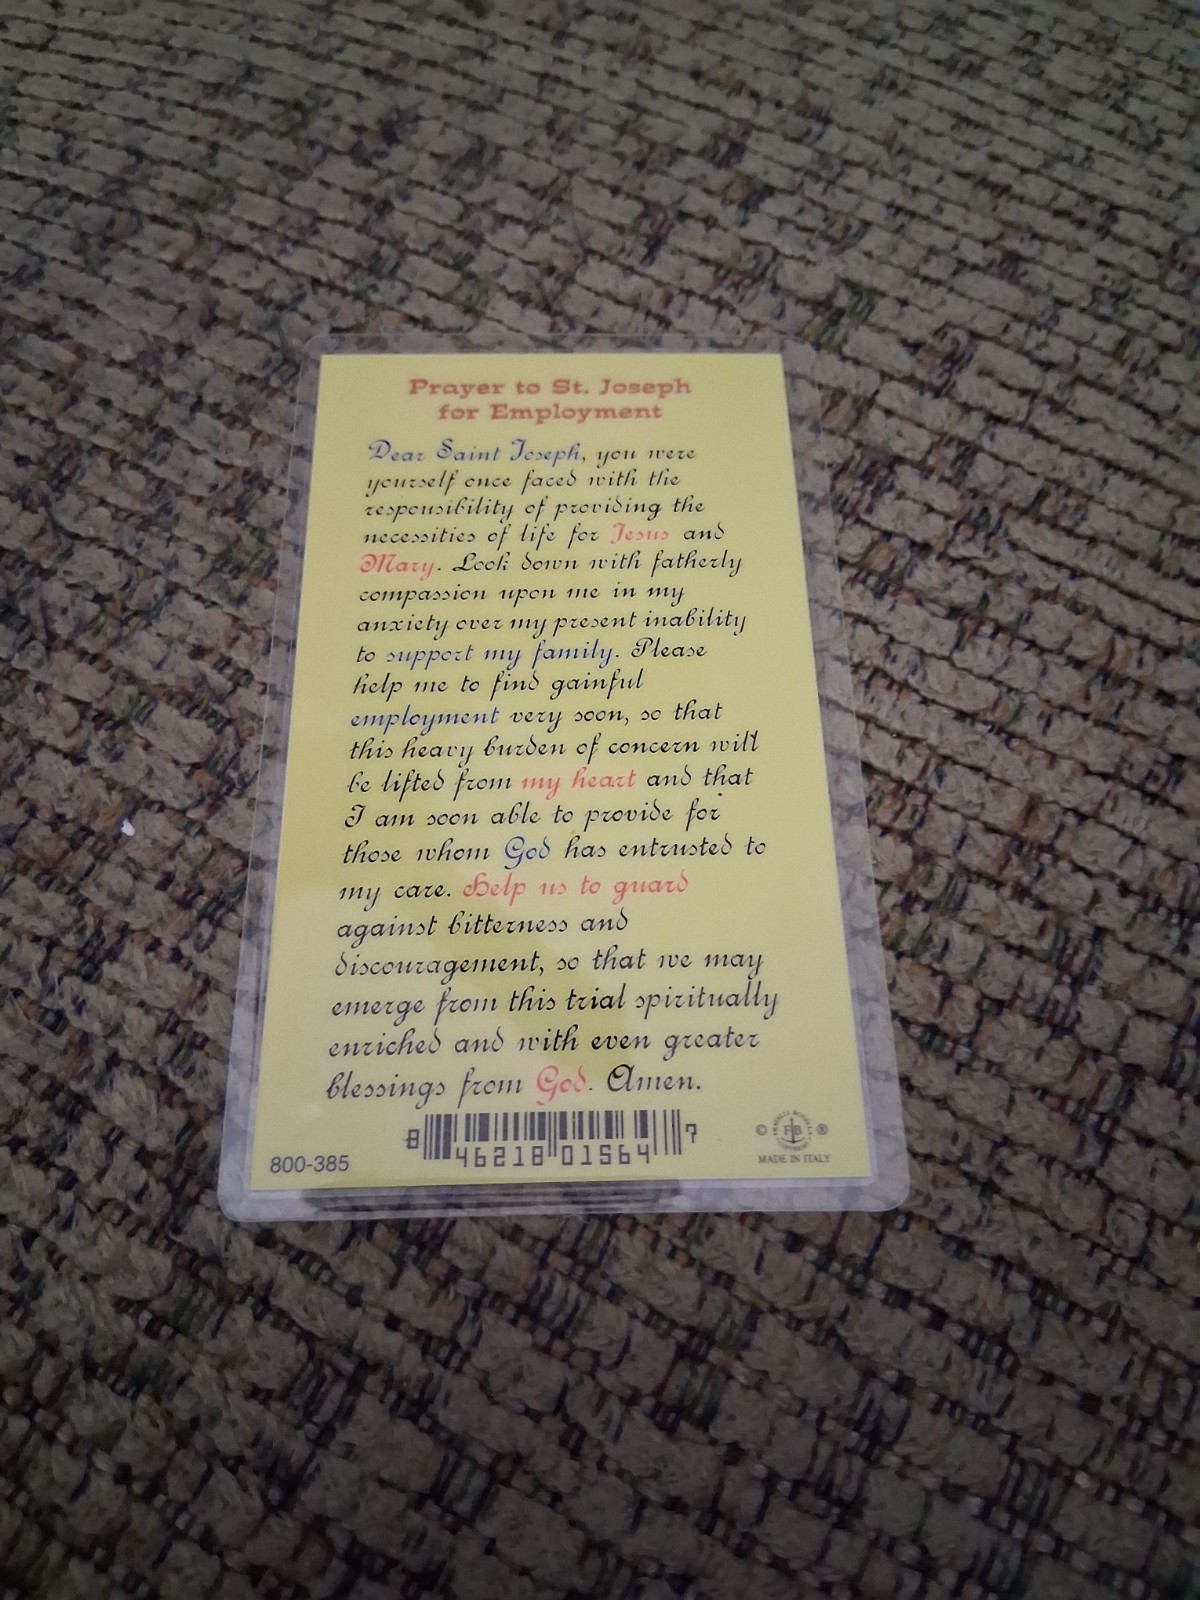 Prayer to St. Joseph
for Employment
Dear Saint Joseph, you were
yourself once faced with the
responsibility of providing the
necessities of life for Jesus and
Mary. Look down with fatherly
compassion upon me in my
anxiety over my present inability
to support my family. Please
help me to find gainful
employment very soon, so that
this heavy burden of concern will
be lifted from my heart and that
I am soon able to provide for
those whom God has entrusted to
my care. Help us to guard
against bitterness and
discouragement, so that we may
emerge from this trial spiritually
enriched and with even greater
blessings from God. Amen.
800-385
8 46218 01564 7
© FB ®
MADE IN ITALY